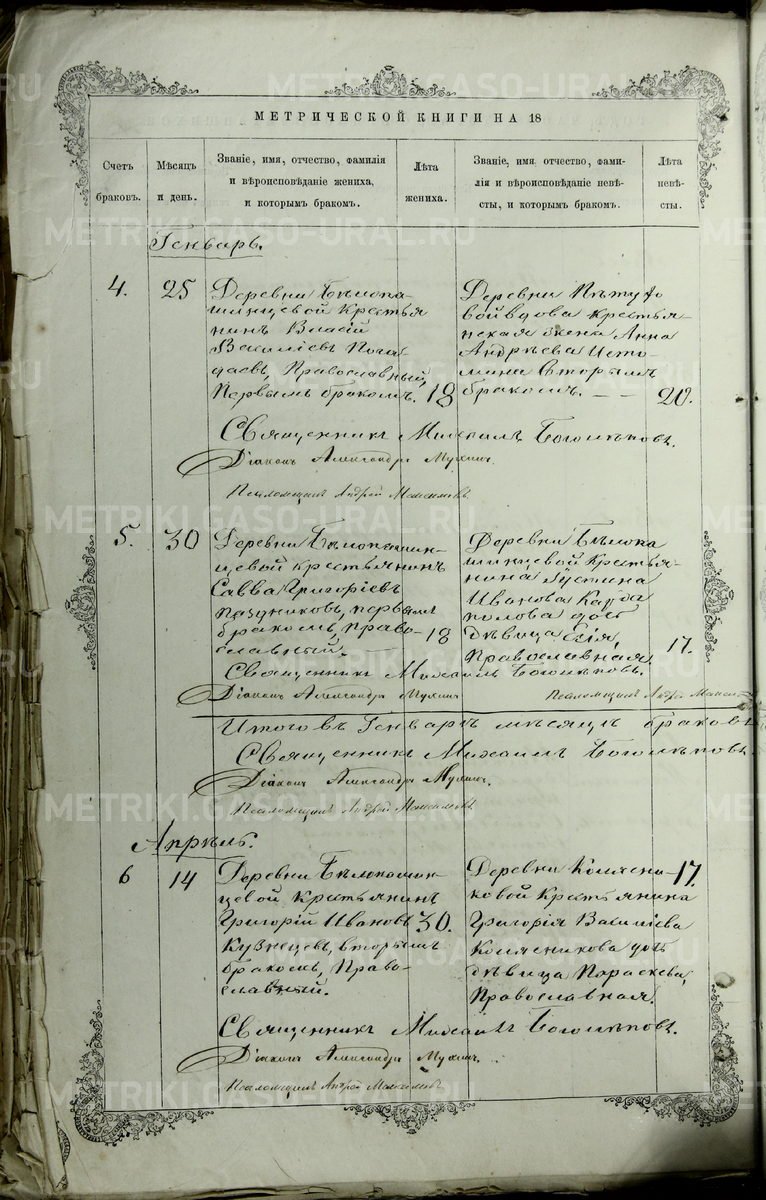 МЕТРИЧЕСКОЙ КНИГИ НА 18
Счетъ браковъ.
Мѣсяцъ и день.
Званіе, имя, отчество, фамилія
и вѣроисповѣданіе жениха,
и которымъ бракомъ.
Лѣта жениха.
Званіе, имя, отчество, фами-
лія и вѣроисповѣданіе невѣ-
сты, и которымъ бракомъ.
Лѣта невѣ-
сты.
Генварь.
4.
25
Деревни Бѣлопа-
шинцевой Крестья
нинъ Власій
Василіевъ
Православный,
Первымъ бракомъ.
18
Деревни Пѣтухо
вой вдова крестья-
нская жена Анна
Андрѣева Исто-
мина вторымъ
бракомъ.
20.
Священникъ Михаилъ Богомѣповъ.
Діаконъ Александръ Мухинъ.
Псаломщикъ Андрей Максимовъ
5.
30
Деревни Бѣлопашин-
цевой крестьянинъ
Савва Григоріевъ
первымъ
бракомъ, право-
славный.
18
Деревни Бѣлопа
шинцевой Крестья-
нина Іустина
Иванова
дочь
дѣвица
Православная.
17.
Священникъ Михаилъ Богомѣповъ.
Діаконъ Александръ Мухинъ
Псаломщикъ Андрей
Итого въ Генварѣ мѣсяцѣ браковъ
Священникъ Михаилъ Богомѣповъ.
Діаконъ Александръ Мухинъ.
Псаломщикъ Андрей Максимовъ
Апрѣль.
6
14
Деревни Бѣлопашин-
цевой Крестьянинъ
Григорій Ивановъ
Кузнецевъ, вторымъ
бракомъ, Право-
славный.
30.
Деревни Колясни-
ковой Крестьянина
Григорія Василіева
Колясникова дочь
дѣвица Параскева,
Православная.
17.
Священникъ Михаилъ Богомѣповъ.
Діаконъ Александръ Мухинъ
Псаломщикъ Андрей Максимовъ
METRIKI.GASO-URAL.RU